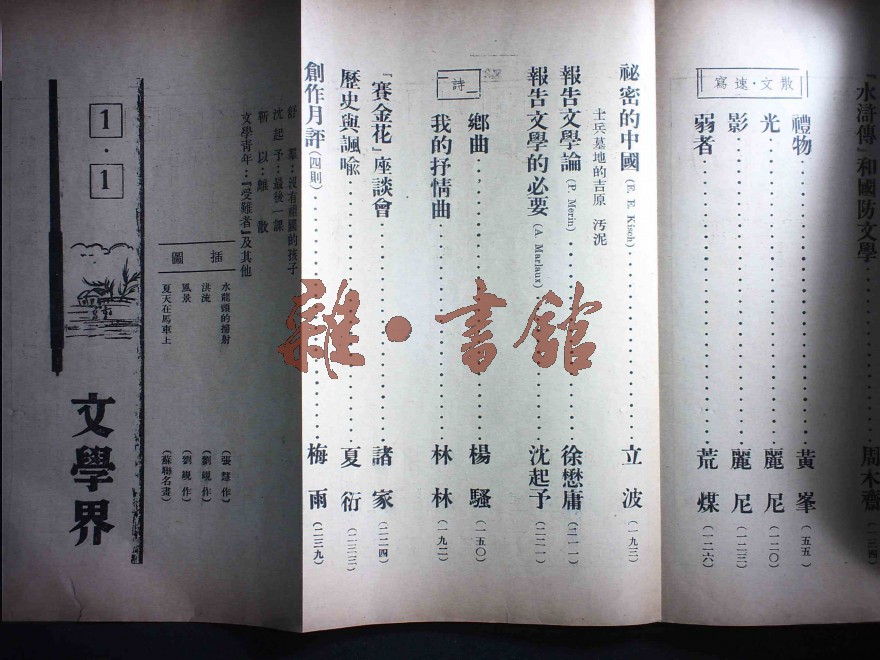 『水滸傳』和國防文學
周木齋
散文・速寫
禮物
黃峯(五五)
光
麗尼(一二〇)
影
麗尼(一二三)
弱者
荒煤(一二六)
祕密的中國(E. E. Kisch)
立波(一九三)
士兵墓地的吉原 汚泥
報告文學論(P. Merin)
徐懋庸
報告文學的必要(A. Marlaux)
沈起予
詩
鄉曲
楊騷(一五〇)
我的抒情曲
林林(一九二)
「賽金花」座談會
諸家(二二四)
歷史與諷喩
夏衍(二三三)
創作月評(四則)
梅雨(二三九)
舒羣:沒有祖國的孩子
沈起予:最後一課
靳以:離散
文學青年:『受難者』及其他
插圖
水龍頭的掃射
(張慧作)
洪流
(劉峴作)
風景
(劉峴作)
夏天在馬車上
(蘇聯名畫)
1・1
文學界
雜・書館